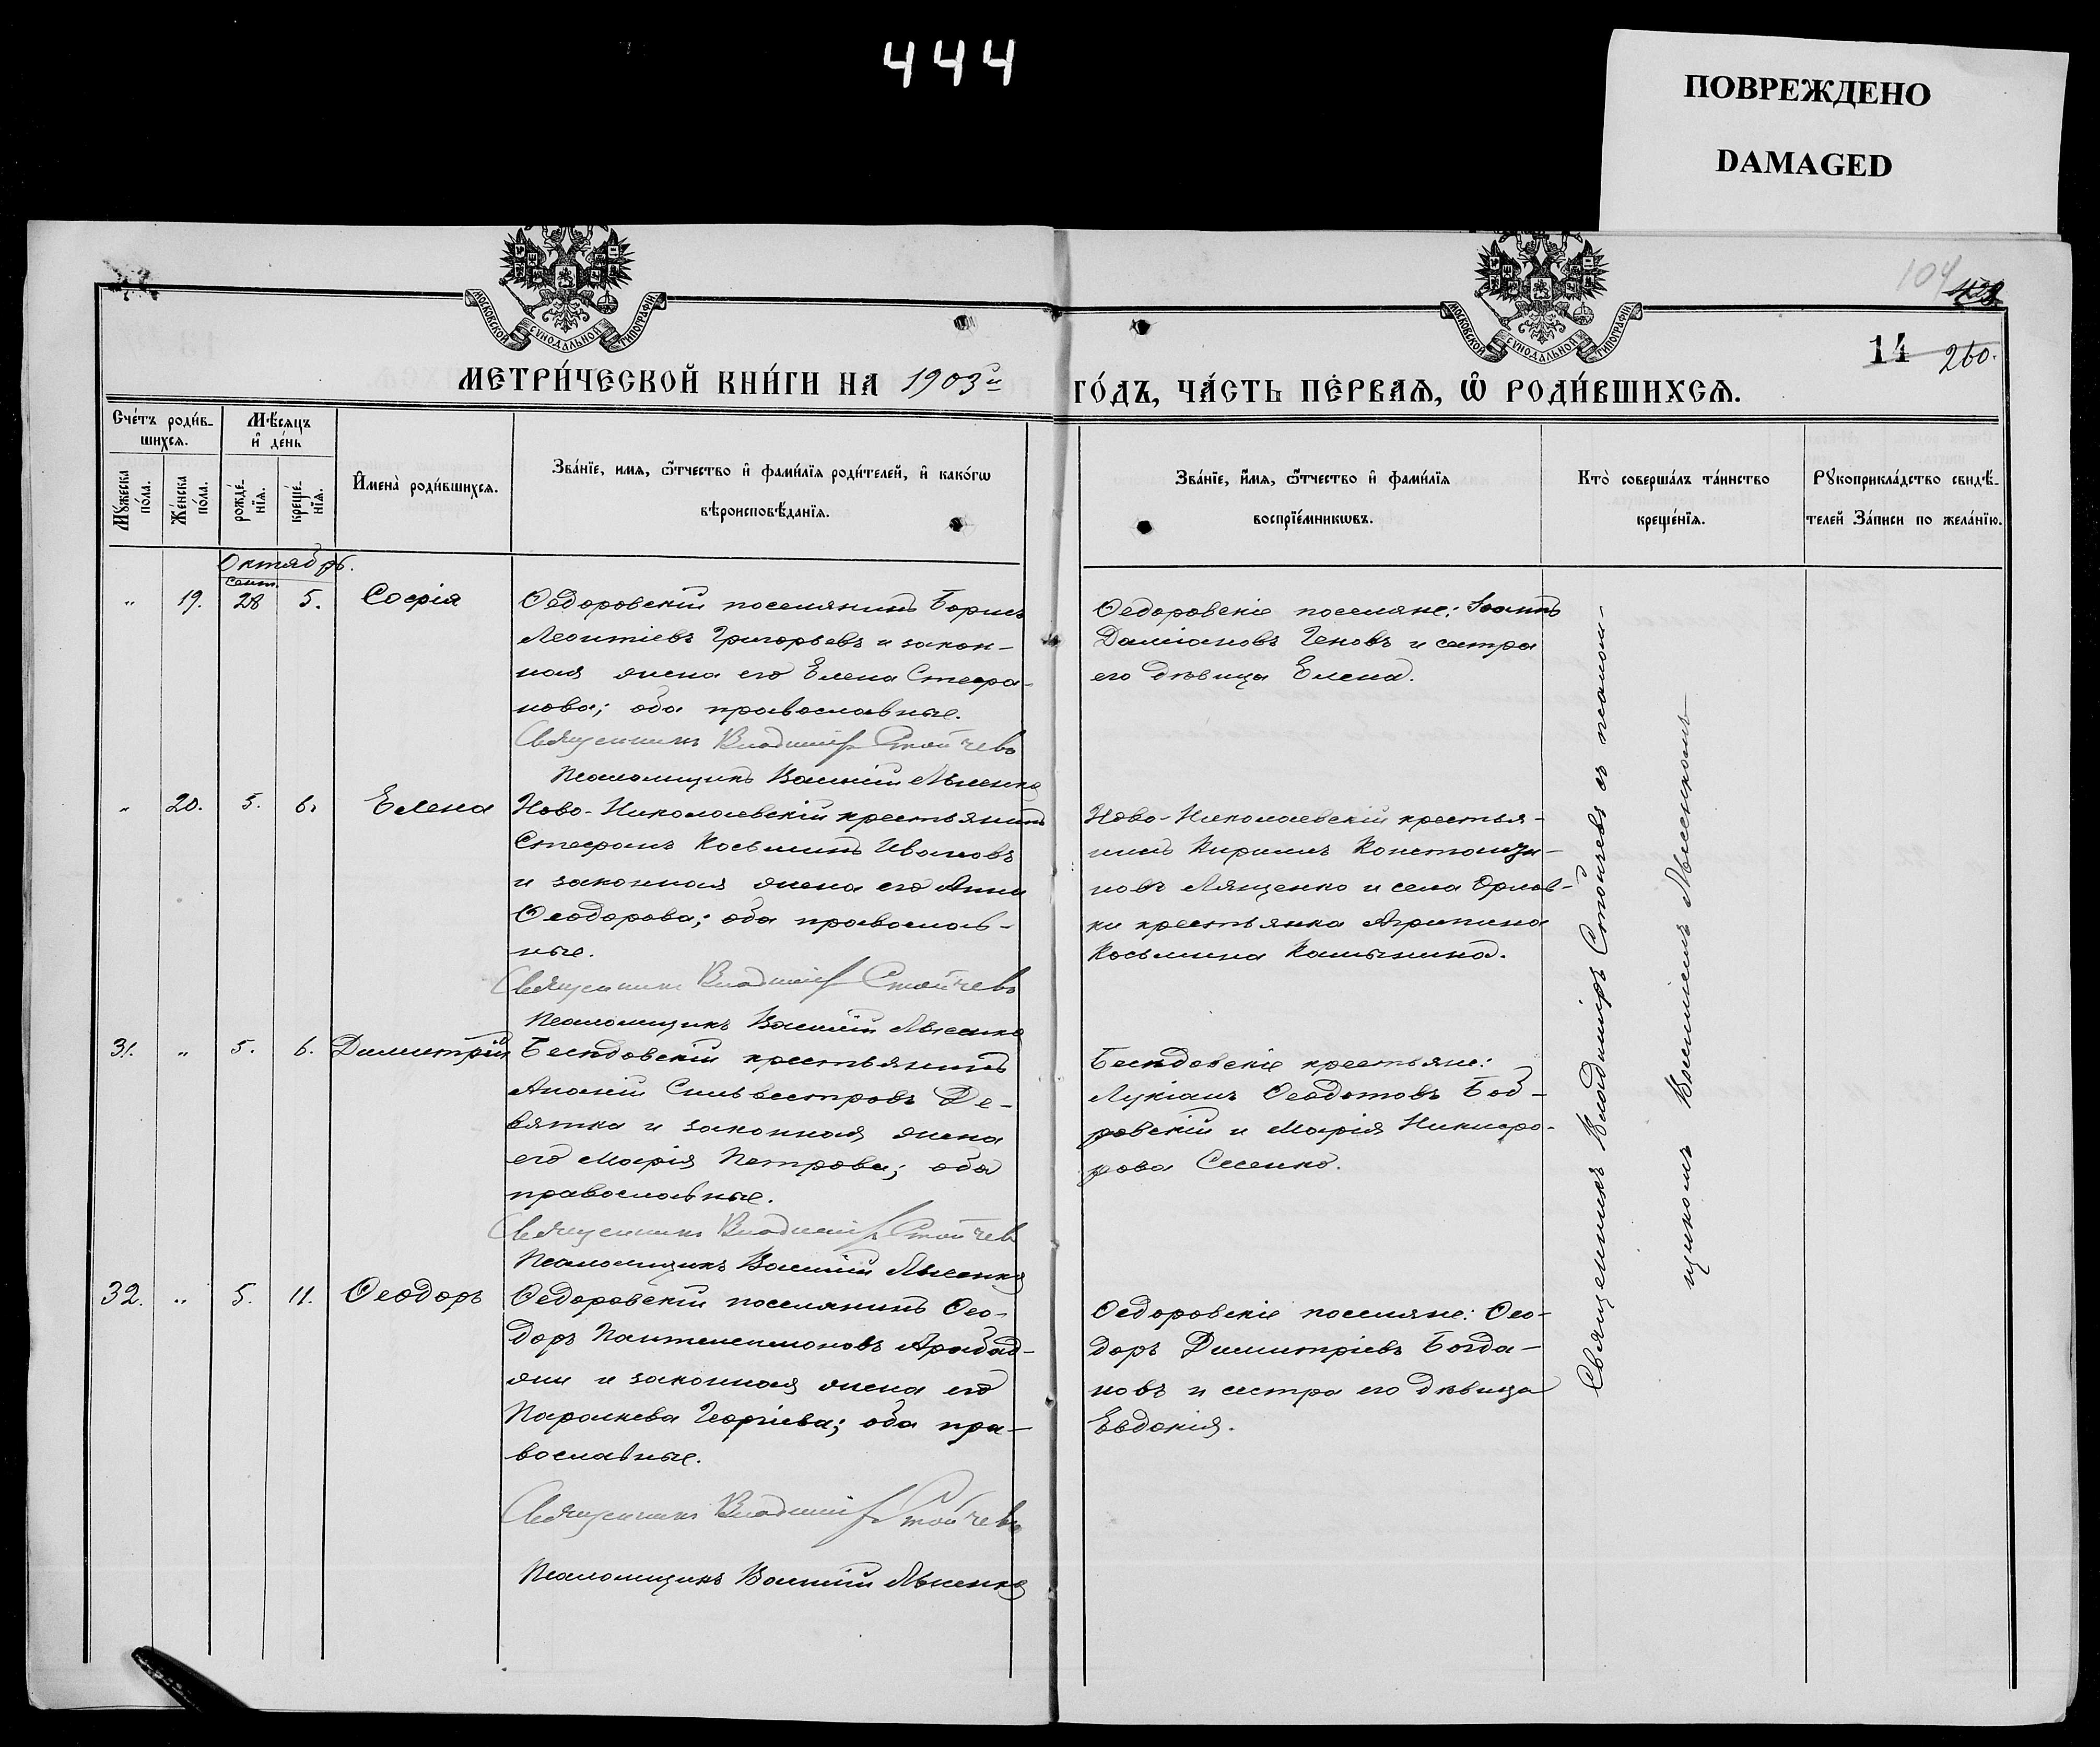 444
ПОВРЕЖДЕНО
DAMAGED
МОСКОВСКОЙ СУНОДАЛЬНОЙ ТИПОГРАФІИ
МОСКОВСКОЙ СУНОДАЛЬНОЙ ТИПОГРАФІИ
104
14 260.
МЕТРИ́ЧЕСКОЙ КНИ́ГИ НА 1903й ГО́ДЪ, ЧА́СТЬ ПЕ́РВАѦ, Ѡ҆ РОДИ́ВШИХСѦ.
Сче́тъ роди́в-
шихсѧ.
Мѣ́сѧцъ
и҆ де́нь
Мꙋ́жеска
по́ла.
Же́нска
по́ла.
рожде́-
нїѧ.
креще́-
нїѧ.
И҆мена̀ роди́вшихсѧ.
Зва́нїе, имѧ, ѻ҆́тчество и҆ фами́лїѧ роди́телей, и҆ како́гѡ
вѣроисповѣ́данїѧ.
Зва́нїе, и҆́мѧ, ѻ҆́тчество и҆ фами́лїѧ
воспрїе́мникѡвъ.
Кто̀ соверша́лъ та́инство
креще́нїѧ.
Рꙋкоприкла́дство свидѣ́-
телей За́писи по жела́нїю.
Октябрь.
сент.
„ 19. 28 5. Софія
Ѳедоровскій поселянинъ Борисъ
Леонтіевъ Григорьевъ и закон-
ная жена его Елена Стефа-
нова; оба православные.
Священникъ Владиміръ Стойчевъ
Псаломщикъ Василій Лысенко
Ѳедоровскіе поселяне: Іоаннъ
Даміановъ Геновъ и сестра
его дѣвица Елена.
„ 20. 5. 6. Елена
Ново-Николаевскій крестьянинъ
Стефанъ Косьминъ Ивановъ
и законная жена его Анна
Ѳеодорова; оба православ-
ные.
Священникъ Владиміръ Стойчевъ
Псаломщикъ Василій Лысенко
Ново-Николаевскій крестья-
нинъ Кириллъ Константи-
новъ Лященко и села Орлов-
ки крестьянка Агрипина
Косьмина Калынина.
31. „ 5. 6. Димитрій
Бесѣдовскій крестьянинъ
Ананій Сильвестровъ Де-
вятка и законная жена
его Марія Петрова; оба
православные.
Священникъ Владиміръ Стойчевъ
Псаломщикъ Василій Лысенко
Бесѣдовскіе крестьяне:
Лукіанъ Ѳеодотовъ Боб-
ровскій и Марія Никифо-
рова Сесенко.
32. „ 5. 11. Ѳеодоръ
Ѳедоровскій поселянинъ Ѳео-
доръ Пантелеимоновъ Арабад-
жи и законная жена его
Параскева Георгіева; оба пра-
вославные.
Священникъ Владиміръ Стойчевъ
Псаломщикъ Василій Лысенко
Ѳедоровскіе поселяне: Ѳео-
доръ Димитріевъ Богда-
новъ и сестра его дѣвица
Евдокія.
Священникъ Владиміръ Стойчевъ съ псалом-
щикомъ Василіемъ Лысенкомъ